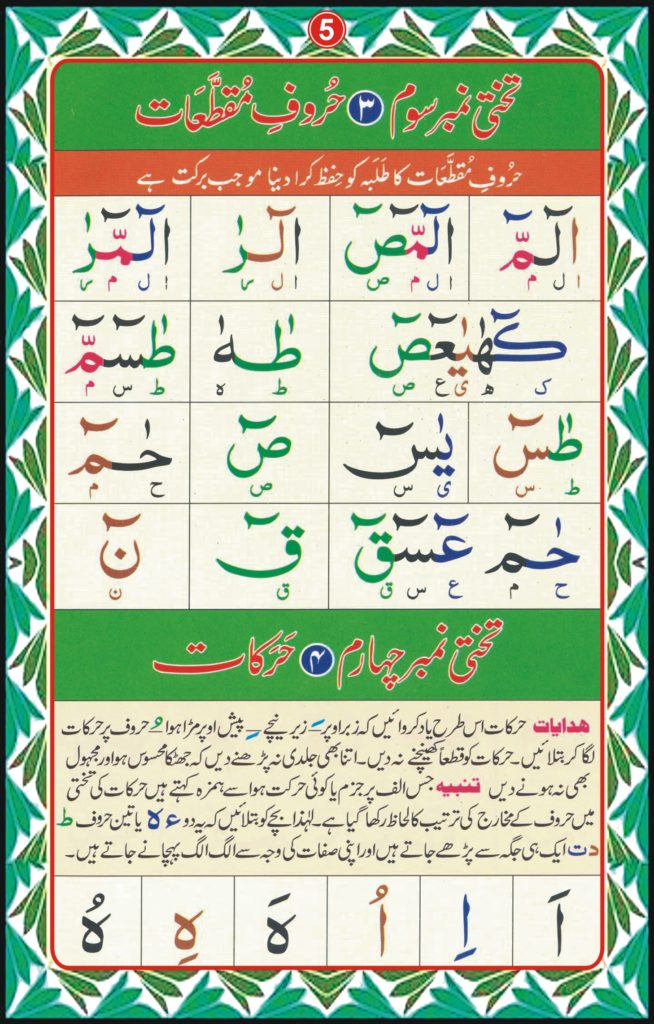 5
تختی نمبر سوم ۳ حُروفِ مُقطَّعَات
حُروفِ مُقطَّعَات کا طَلَبہ کو حِفظ کرا دینا موجب برکت ہے
الٓمّٓ الٓمّٓصٓ الٓرٰ الٓمّٓرٰ
ا ل م ا ل م ص ا ل ر ا ل م ر
كٓهٰيٰعٓصٓ طٰهٰ طٰسٓمّٓ
ک ھ ی ع ص ط ہ ط س م
طٰسٓ يٰسٓ صٓ حٰمٓ
ط س ی س ص ح م
حٰمٓ عٓسٓقٓ قٓ نٓ
ح م ع س ق ق ن
تختی نمبر چہارم ۴ حَرَکات
ھدایات حرکات اس طرح یاد کروائیں کہ زبر اوپر ـَ زیر نیچے ـِ پیش اوپر مڑا ہوا ـُ حروف پر حرکات
لگا کر بتلائیں۔ حرکات کو قطعاً کھینچنے نہ دیں۔ اتنا بھی جلدی نہ پڑھنے دیں کہ جھٹکا محسوس ہو اور مجہول
بھی نہ ہونے دیں تنبیه جس الف پر جزم یا کوئی حرکت ہو اسے ہمزہ کہتے ہیں حرکات کی تختی
میں حروف کے مخارج کی ترتیب کا لحاظ رکھا گیا ہے۔ لہٰذا بچے کو بتلائیں کہ یہ دو ء ہ یا تین حروف ط
د ت ایک ہی جگہ سے پڑھے جاتے ہیں اور اپنی صفات کی وجہ سے الگ الگ پہچانے جاتے ہیں۔
اَ اِ اُ هَ هِ هُ